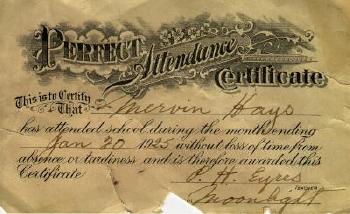 PERFECT
Attendance
Certificate
This is to Certify
That Mervin Hays
has attended school during the month ending
Jan 20 1925 without loss of time from
absence or tardiness and is therefore awarded this
Certificate
P. H. Eyres
TEACHER